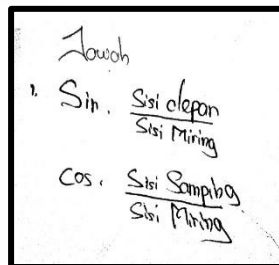 Jawab
1. Sin. Sisi depan
Sisi Miring
cos. Sisi Samping
Sisi Miring